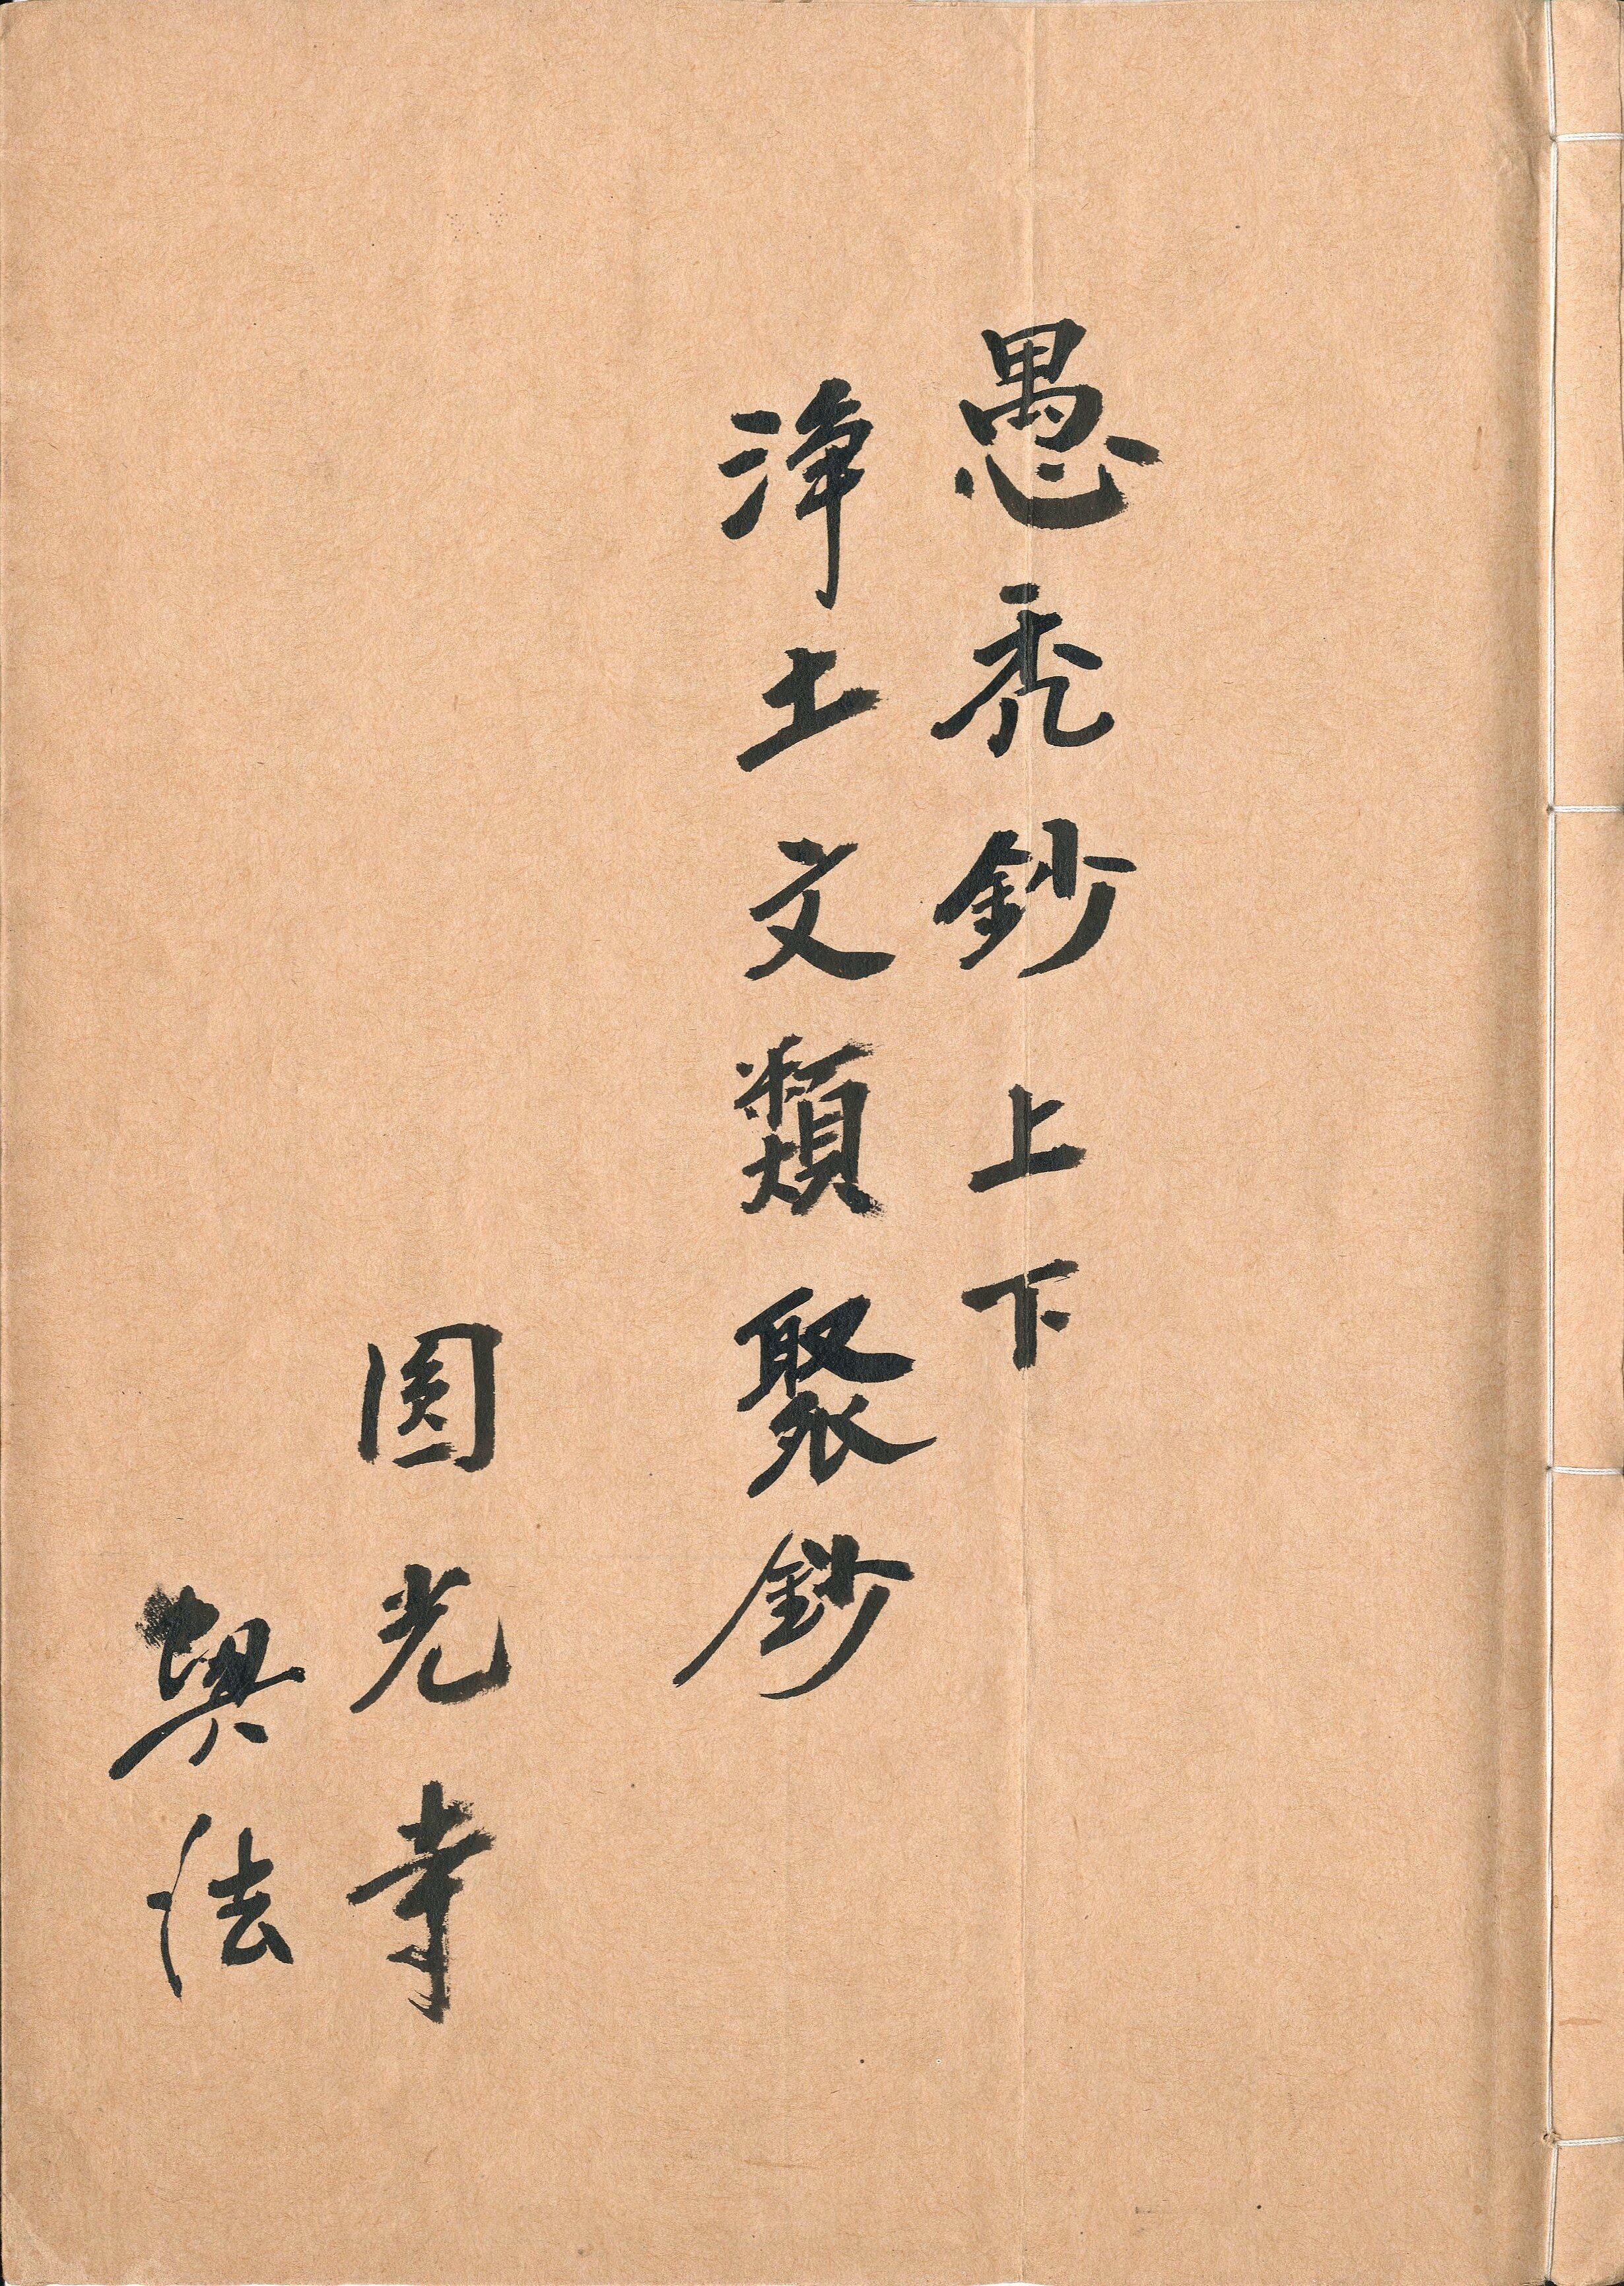 愚禿鈔上下
浄土文類聚鈔
圓光寺
㒷法